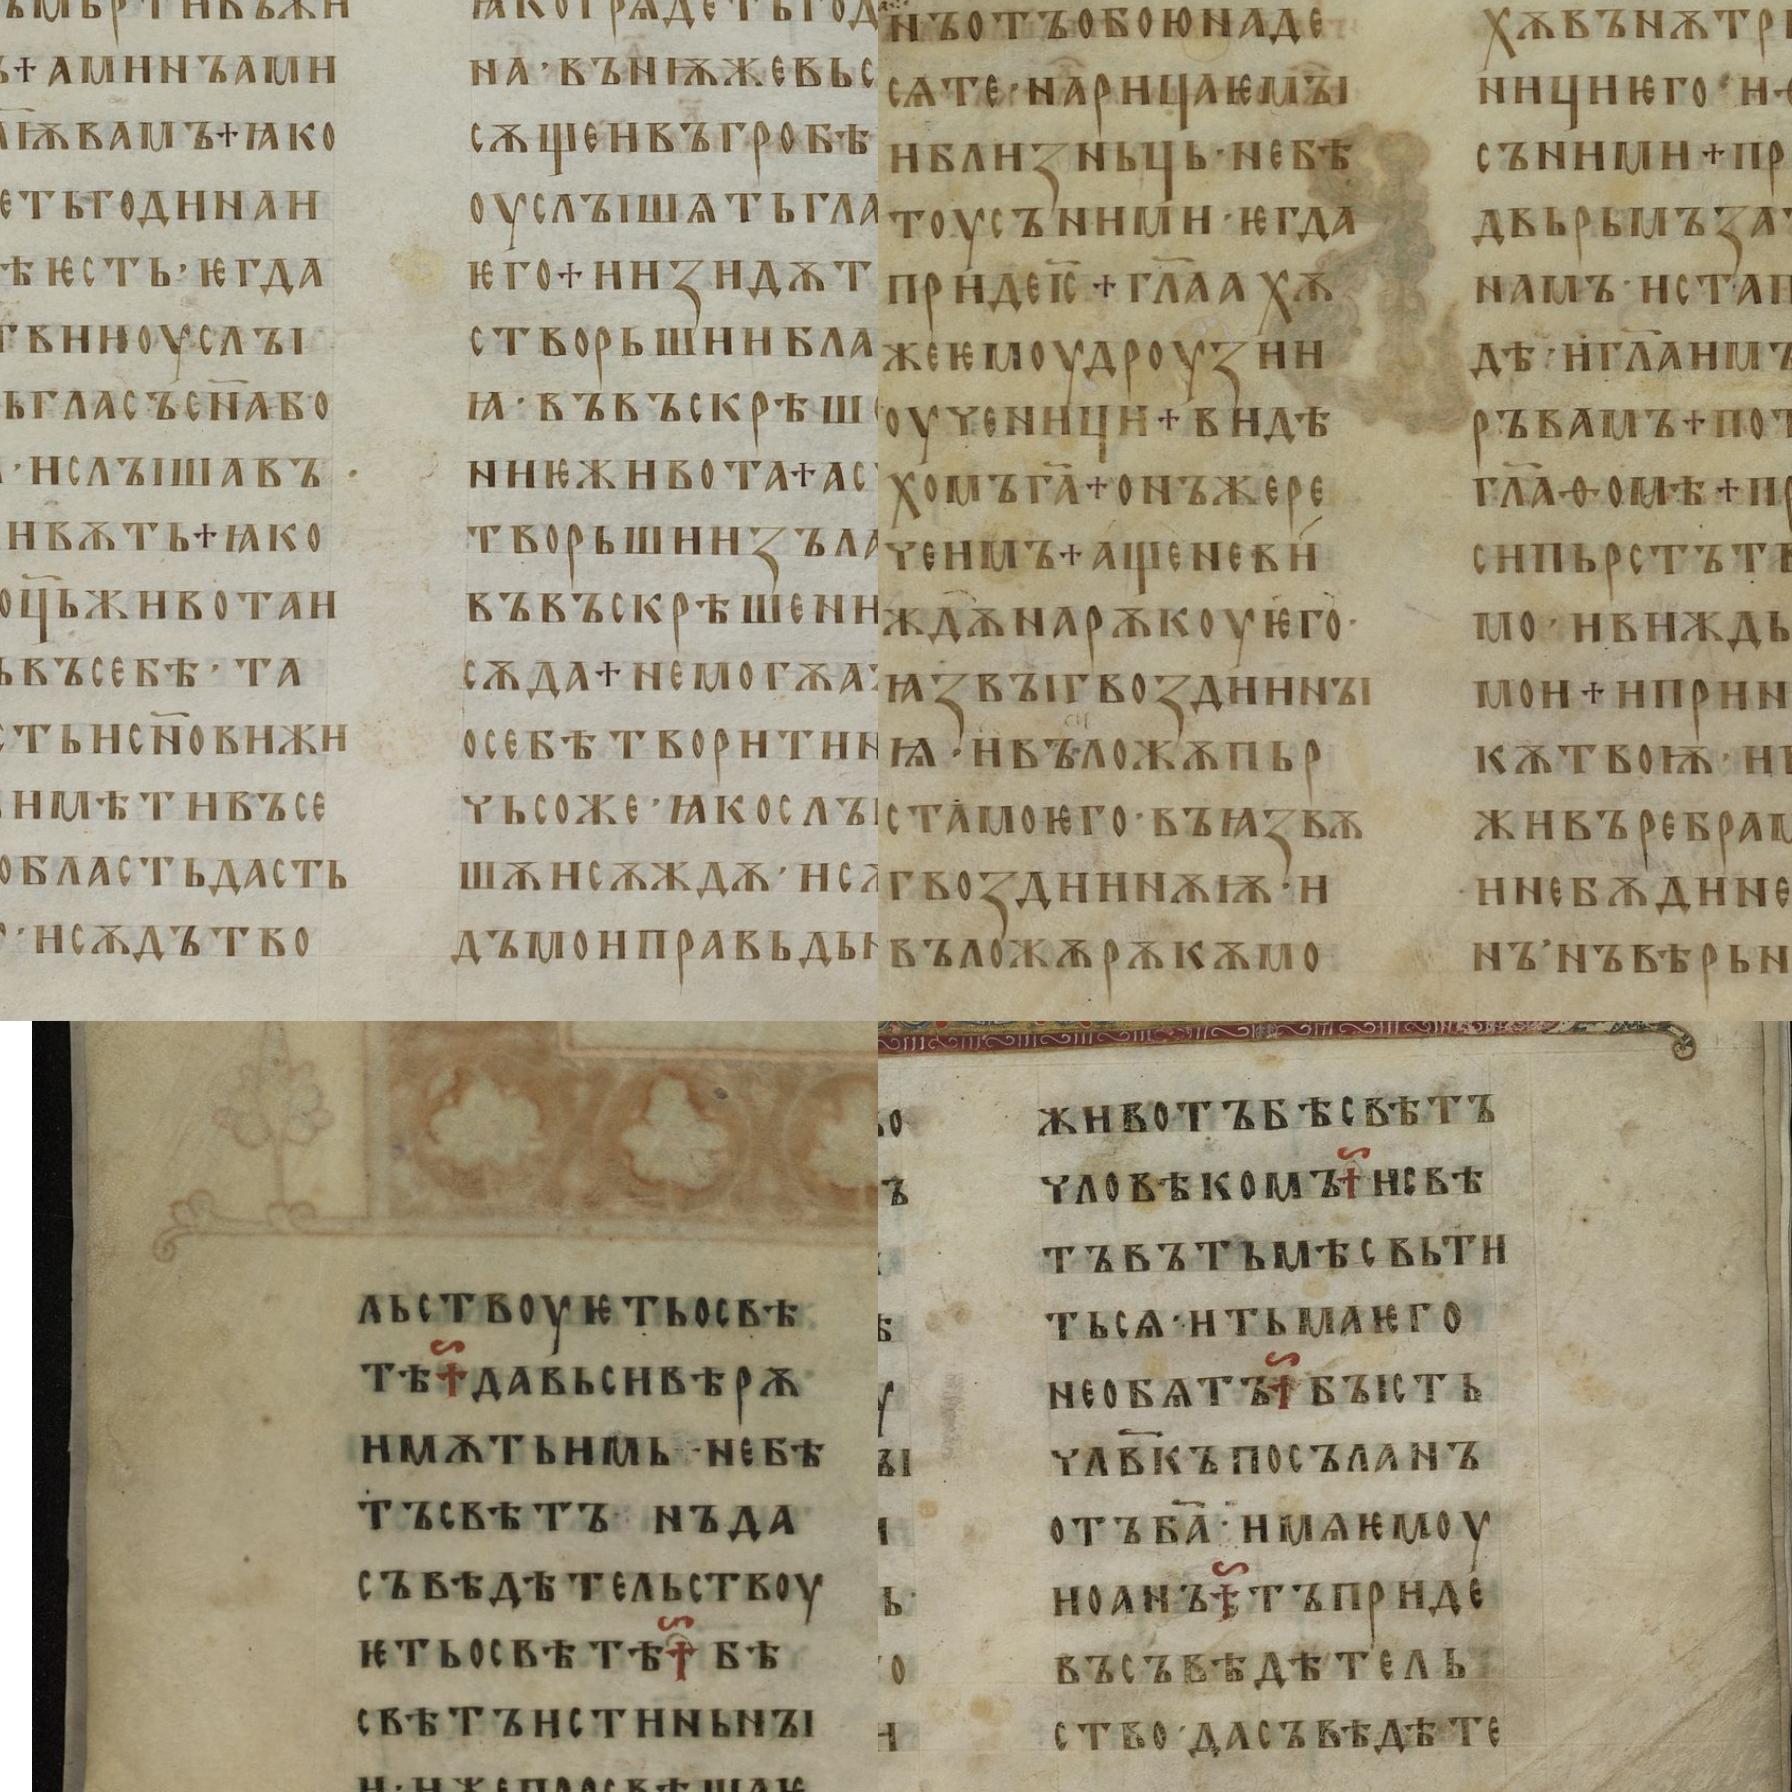 ъ+аминъами
ѭвамъ+ꙗко
етьгодинаи
ѣѥсть·ѥгда
твииоуслꙑ
ьгласъсн҃або
·ислꙑшавъ
ивѫть+ꙗко
оц҃ьживотаи
ьвъсебѣ·та
стьисн҃овижи
имѣтивъсе
областьдасть
·исѫдътво
ꙗкогрѧдетьгод
на·вънѭжевьс
сѫщеивъгробѣ
оуслꙑшѧтьгла
ѥго+иизидѫт
створьшиибла
ꙗ·въвъскрѣш
ниѥживота+а
творьшиизъла
въвъскрѣшени
сѫда+немогѫа
осебѣтворитин
чьсоже·ꙗкослꙑ
шѫисѫждѫ·и
дъмоиправьдь
нъотъобоюнаде
сѧте·нарицаѥмꙑ
иблизньць·небѣ
тоусъними·ѥгда
придеі҃с+гл҃аахѫ
жеѥмоудроузии
оученици+видѣ
хомъга҃+онъжере
ченмъ+ащеневи
ждѫнарѫкоуѥго·
ꙗзвꙑгвоздинꙑ
ѩ·ивъложѫпьр
стамоѥго·въꙗзвѫ
гвоздиннѫѭ·и
въложѫрѫкѫмо
хѫвънѫтр
ницииего·и
съними+пр
двьрьмъза
намъ·иста
дѣ·игл҃аим
ръвамъ+по
гл҃аѳомѣ+п
сипьрстът
мо·ивиждь
мои+иприн
кѫтвоѭ·и
живъребра
ниебѫдине
нъ·нъвѣрьн
льствоуѥтьосвѣ
тѣ+давьсивѣрѫ
имѫтьимь·небѣ
тъсвѣтъ·нъда
съвѣдѣтельствоу
ѥтьосвѣтѣ+бѣ
свѣтъистиньнꙑ
и·ижепросвѣщаѥ
животъбѣсвѣтъ
чловѣкомъ+исвѣ
тъвътьмѣсвьти
тьсѧ·итьмаѥго
необѧтъ+бꙑсть
члв҃къпосъланъ
отъба҃·имѧѥмоу
иоанъ+тъприде
въсъвѣдѣтель
ство·дасъвѣдѣте